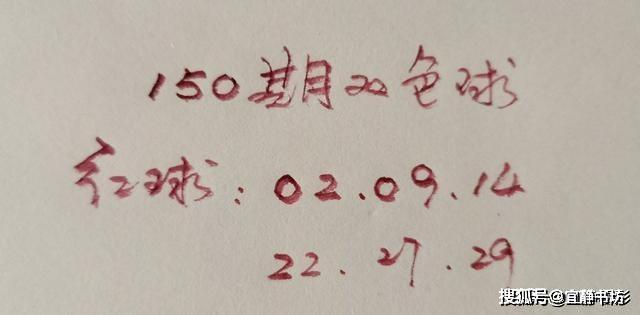 150期双色球
红球：02.09.14
22.27.29
搜狐号@宜静书坊彡